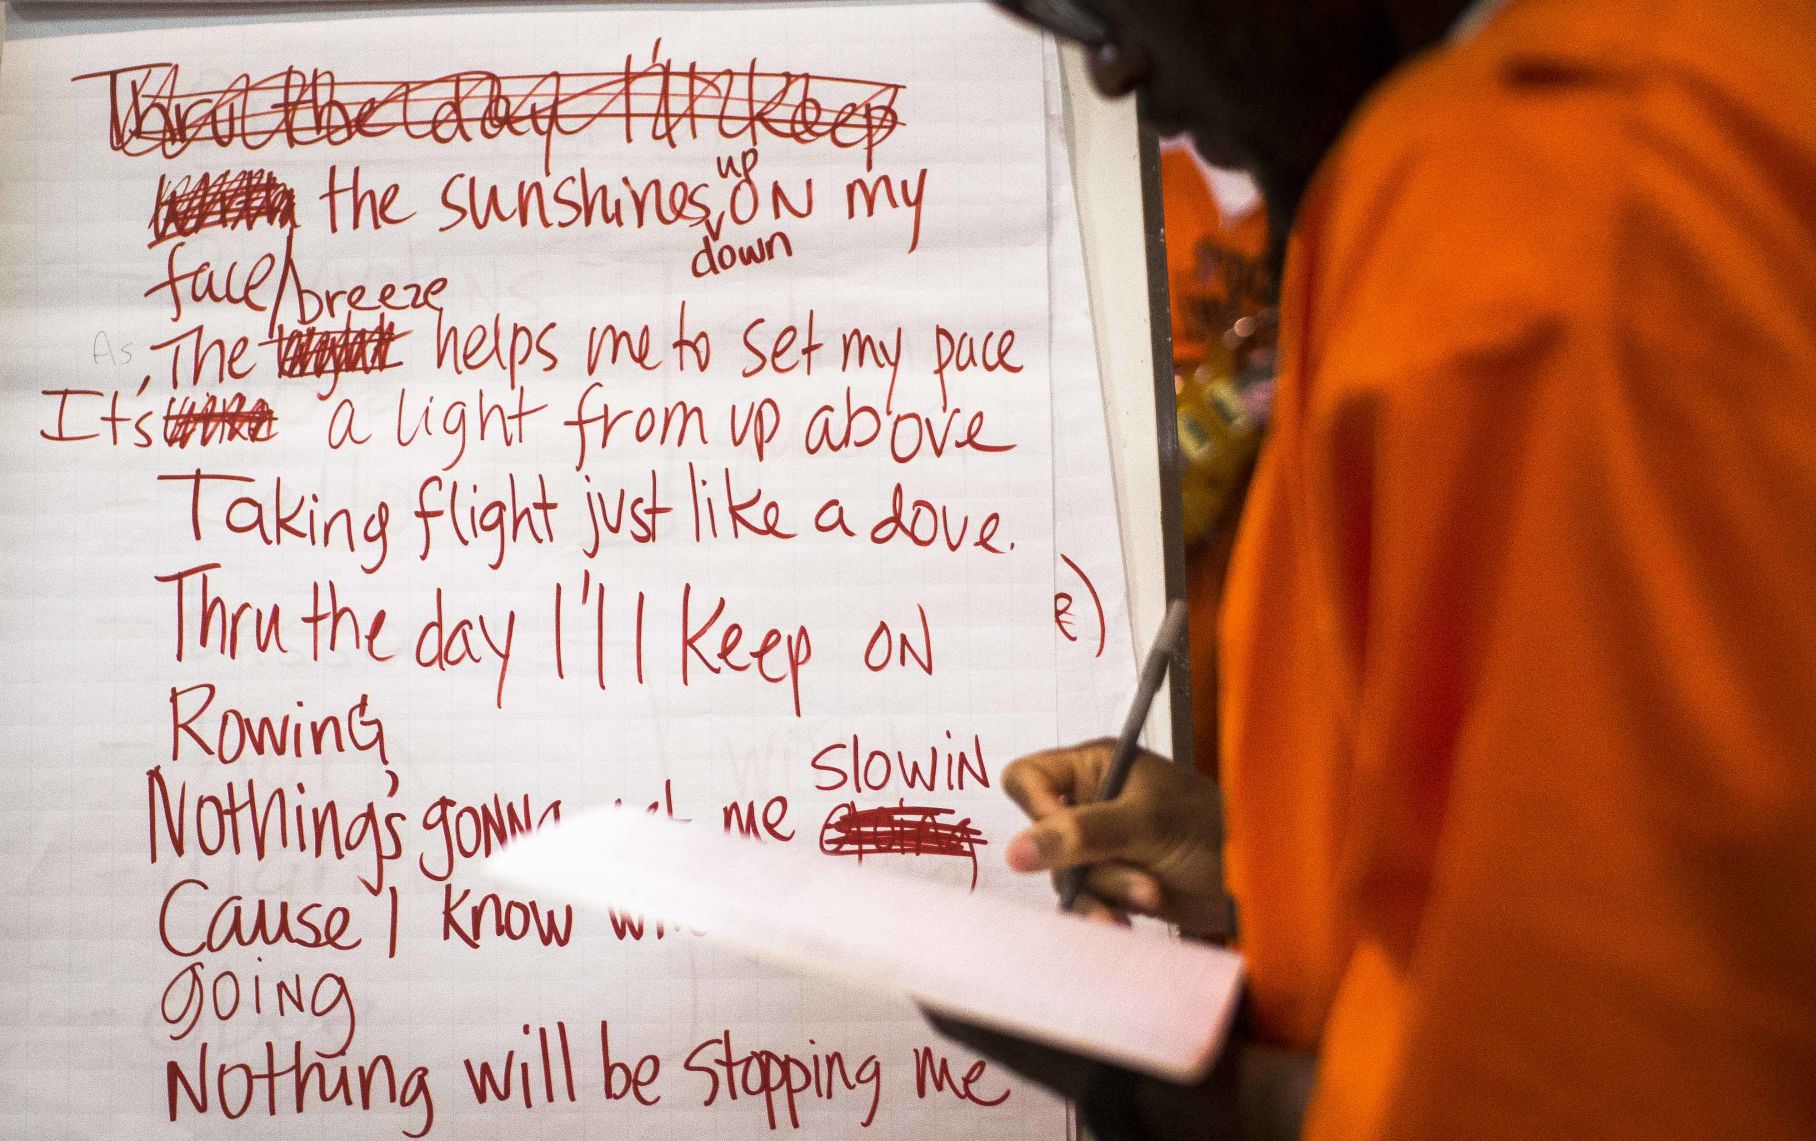 Thru the day I'll keep
the sunshines up ON my
down
face/
breeze
As, The helps me to set my pace
It's a light from up above
Taking flight just like a dove.
Thru the day I'll keep ON
Rowing
slowiN
Nothing's gonna me
Cause I know
going
Nothing will be stopping me